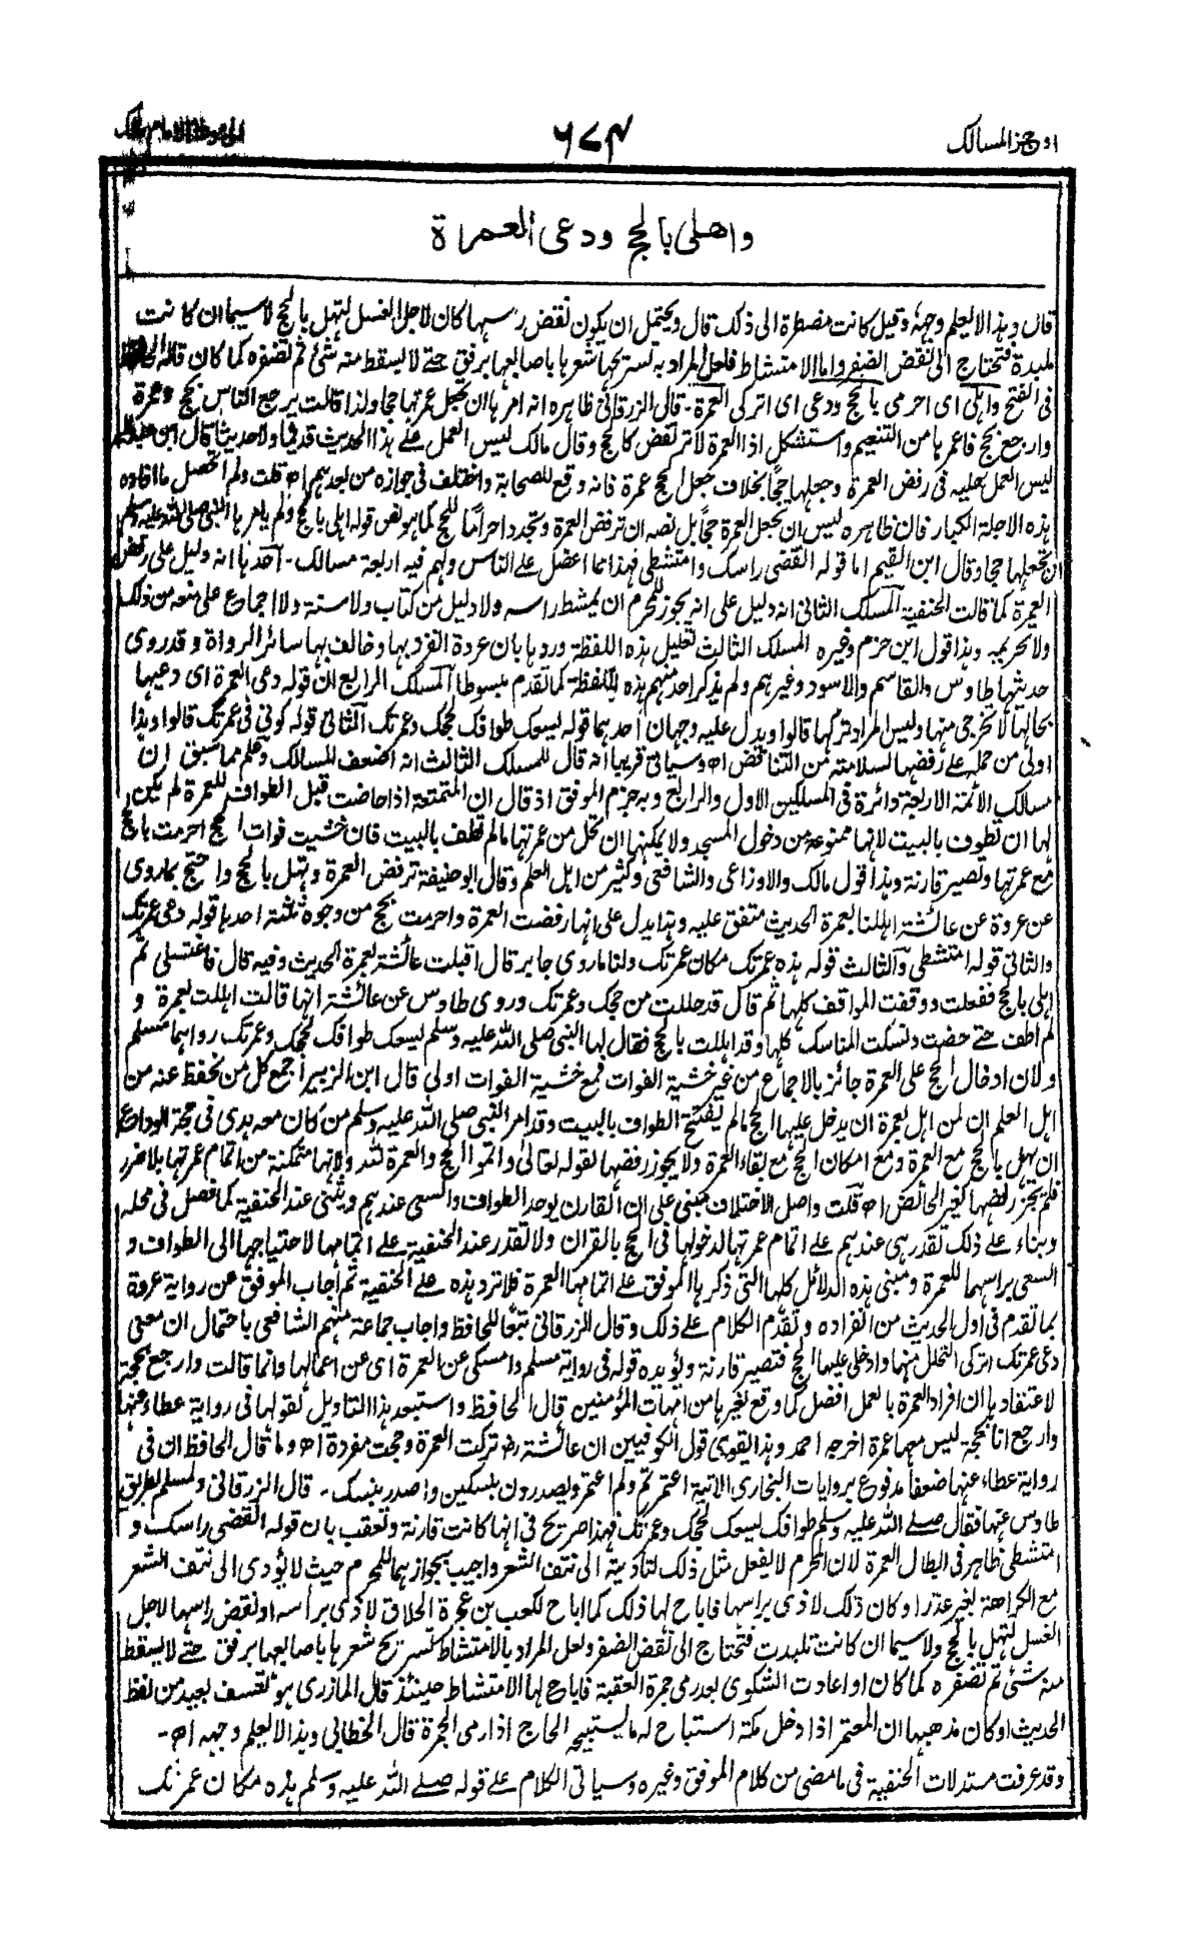 اوجز المسالک ٦٧٩ الی موطأ الامام مالک
واهلی بالحج ودعی العمرة
قال وهذا لا یعلم وجهه وقیل کانت مضطرة الی ذلک قال ویحتمل ان یکون نقض رأسها کان لاجل الغسل لتهل بالحج لا سیما ان کانت
ملبدة فتحتاج الی نقض الضفر واما الامتشاط فلعل المراد به تسریحها شعرها باصابعها برفق حتے لا یسقط منه شئ ثم تضفره کما کان قاله
فی الفتح واهلی ای احرمی بالحج ودعی ای اترکی العمرة۔ قال الزرقانی ظاهره انه امرها ان تجعل عمرتها حجا ولذا قالت یرجع الناس بحج وعمرة
وارجع بحج فاعمرها من التنعیم واستشکل اذ العمرة لا ترتفض کالحج وقال مالک لیس العمل علے هذا الحدیث قدیما ولا حدیثا قال ابن عبد البر
لیس العمل علیه فی رفض العمرة وجعلها حجًا بخلاف جعل الحج عمرة فانه وقع للصحابة واختلف فی جوازه من بعدهم اه قلت ولم اتحصل ما افاده
هذه الاجلة الکبار فان ظاهره لیس ان یجعل العمرة حجًا بل نصه ان ترفض العمرة وتجدد احرامًا للحج کما هو نص قوله اهلی بالحج ولم یامرها النبی صلی الله علیه وسلم
ان تجعلها حجا وقال ابن القیم اما قوله انقضی راسک وامتشطی فهذا مما اعضل علے الناس ولهم فیه اربعة مسالک۔ احدها انه دلیل علی رفض
العمرة کما قالت الحنفیة المسلک الثانی انه دلیل علی انه یجوز للمحرم ان یمشط راسه ولا دلیل من کتاب ولا سنة ولا اجماع علی منعه من ذلک
ولا تحریمه وهذا قول ابن حزم وغیره المسلک الثالث تعلیل هذه اللفظة وردها بان عروة انفرد بها وخالف بها سائر الرواة وقد روی
حدیثها طاوس والقاسم والاسود وغیرهم ولم یذکر احد منهم هذه اللفظة کما تقدم مبسوطا المسلک الرابع ان قوله دعی العمرة ای دعیها
بحالها لا تخرجی منها ولیس المراد ترکها قالوا ویدل علیه وجهان احدهما قوله یسعک طوافک لحجک وعمرتک الثانی قوله کونی فی عمرتک قالوا وهذا
اولی من حمله علے رفضها لسلامته من التناقض اه وسیاتی قریبا انه قال للمسلک الثالث انه اضعف المسالک وعلم مما سبق ان
مسالک الأئمة الاربعة دائرة فی المسلکین الاول والرابع وبه جزم الموفق اذ قال ان المتمتعة اذا حاضت قبل الطواف للعمرة لم یکن
لها ان تطوف بالبیت لانها ممنوعة من دخول المسجد ولا یمکنها ان تحل من عمرتها مالم تطف بالبیت فان خشیت فوات الحج احرمت بالحج
مع عمرتها وتصیر قارنة وهذا قول مالک والاوزاعی والشافعی وکثیر من اهل العلم وقال ابو حنیفة ترفض العمرة وتهل بالحج واحتج بما روی
عن عروة عن عائشة اهللنا بعمرة الحدیث متفق علیه وهذا یدل علی انها رفضت العمرة واحرمت بحج من وجوه ثلثة احدها قوله دعی عمرتک
والثانی قوله امتشطی والثالث قوله هذه عمرتک مکان عمرتک ولنا ما روی جابر قال اقبلت عائشة بعمرة الحدیث وفیه قال فاغتسلی ثم
اهلی بالحج ففعلت ووقفت المواقف کلها ثم قال قد حللت من حجک وعمرتک وروی طاوس عن عائشة انها قالت اهللت بعمرة و
لم اطف حتے حضت ونسکت المناسک کلها وقد اهللت بالحج فقال لها النبی صلی الله علیه وسلم یسعک طوافک لحجک وعمرتک رواهما مسلم
ولان ادخال الحج علی العمرة جائز بالاجماع من غیر خشیة الفوات فمع خشیة الفوات اولی قال ابن المنذر اجمع کل من نحفظ عنه من
اهل العلم ان لمن اهل بعمرة ان یدخل علیها الحج مالم یفتتح الطواف بالبیت وقد امر النبی صلی الله علیه وسلم من کان معه هدی فی حجة الوداع
ان یهل بالحج مع العمرة ومع امکان الحج مع بقاء العمرة ولا یجوز رفضها لقوله تعالی واتموا الحج والعمرة لله ولانها متمکنة من اتمام عمرتها بلا ضرر
فلم یجز رفضها کغیر الحائض اه قلت واصل الاختلاف مبنی علی ان القارن یوحد الطواف والسعی عندهم ویثنی عند الحنفیة کما فصل فی محله
وبناء علے ذلک تقدر هی عندهم علے اتمام عمرتها لدخولها فی الحج بالقران ولا تقدر عند الحنفیة علے اتمامها لاحتیاجها الی الطواف و
السعی براسهما للعمرة ومبنی هذه الدلائل کلها التی ذکرها الموفق علے اتمامها العمرة فلا ترد هذه علے الحنفیة ثم اجاب الموفق عن روایة عروة
بما تقدم فی اول الحدیث من انفراده وتقدم الکلام علے ذلک وقال الزرقانی تبعًا للحافظ واجاب جماعة منهم الشافعی باحتمال ان معنی
دعی عمرتک اترکی التحلل منها وادخلی علیها الحج فتصیر قارنة ویؤیده قوله فی روایة مسلم وامسکی عن العمرة ای عن اعمالها وانما قالت وارجع بحجة
لاعتقادها ان افراد العمرة بالعمل افضل کما وقع لغیرها من امهات المؤمنین قال الحافظ واستبعد هذا التاویل لقولها فی روایة عطاء عنها
وارجع انا بحجة لیس معها عمرة اخرجه احمد وهذا یقوی قول الکوفیین ان عائشة رض ترکت العمرة وحجت مفردة اه وما قال الحافظ ان فی
روایة عطاء عنها ضعفا مدفوع بروایات البخاری الآتیة اعتمرتم ولم اعتمر ویصدرون بنسکین واصدر بنسک۔ قال الزرقانی ولمسلم بطریق
طاوس عنها فقال صلے الله علیه وسلم طوافک یسعک لحجک وعمرتک فهذا صریح فی انها کانت قارنة وتعقب بان قوله انقضی راسک و
امتشطی ظاهر فی ابطال العمرة لان المحرم لا یفعل مثل ذلک لتأدیته الی نتف الشعر واجیب بجوازهما للمحرم حیث لا یؤدی الی نتف الشعر
مع الکراهة لغیر عذر او کان ذلک لاذی براسها فاباح لها ذلک کما اباح لکعب بن عجرة الحلاق لاذی برأسه او نقض راسها لاجل
الغسل لتهل بالحج ولا سیما ان کانت تلبدت فتحتاج الی نقض الضفر ولعل المراد بالامتشاط تسریح شعرها باصابعها برفق حتے لا یسقط
منه شئ ثم تضفره کما کان او اعادت الشکوی بعد رمی جمرة العقبة فاباح لها الامتشاط حینئذ قال المازری هو تعسف بعید من لفظ
الحدیث او کان مذهبها ان المعتمر اذا دخل مکة استباح له ما یستبیحه الحاج اذا رمی الجمرة قال الخطابی وهذا لا یعلم وجهه اه۔
وقد عرفت مستدلات الحنفیة فی ما مضی من کلام الموفق وغیره وسیاتی الکلام علے قوله صلے الله علیه وسلم هذه مکان عمرتک